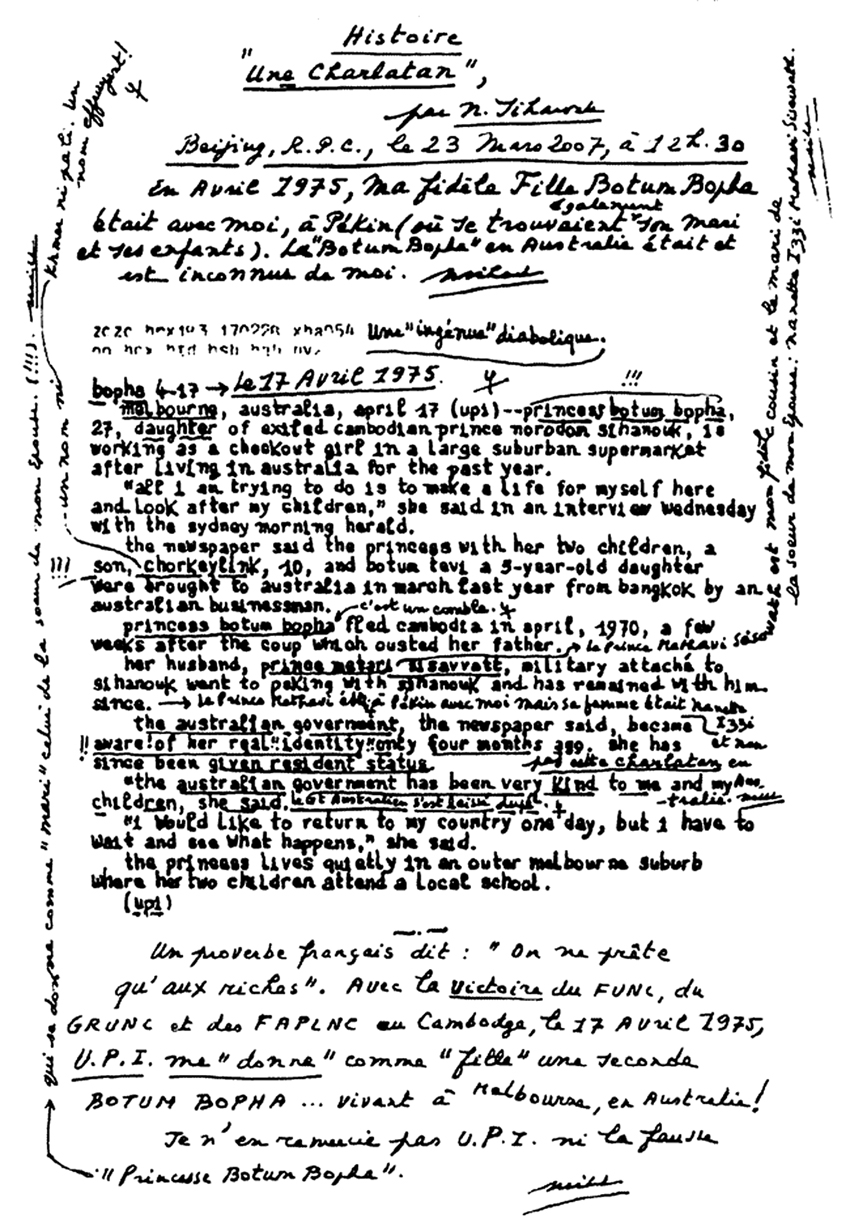 Histoire
"Une Charlatan",
par N. Sihanouk
Beijing, R.P.C., le 23 Mars 2007, à 12h.30
En Avril 1975, Ma fidèle Fille Botum Bopha
était avec moi, à Pékin (où se trouvaient également son Mari
et ses enfants). La "Botum Bopha" en Australie était et
est inconnue de moi.
Une "ingénue" diabolique.
bopha 4-17 → Le 17 Avril 1975.
!!!
melbourne, australia, april 17 (upi)--princess botum bopha,
27, daughter of exiled cambodian prince norodom sihanouk, is
working as a checkout girl in a large suburban supermarket
after living in australia for the past year.
"all i am trying to do is to make a life for myself here
and look after my children," she said in an interview wednesday
with the sydney morning herald.
the newspaper said the princess with her two children, a
son, chorkeylink, 10, and botum tevi a 5-year-old daughter
!!!
were brought to australia in march last year from bangkok by an
australian businessman.
c'est un comble.
princess botum bopha fled cambodia in april, 1970, a few
weeks after the coup which ousted her father.
her husband, prince metari sisavvatt, military attaché to
sihanouk went to peking with sihanouk and has remained with him
since. → Le Prince Methavi était à Pékin avec moi mais sa femme était Nanette
Izzi
et non
pas cette charlatan en
Australie.
the australian government, the newspaper said, became
!! aware of her real "identity" only four months ago. she has
since been given resident status.
"the australian government has been very kind to me and my
children, she said. Le Gt Australien s'est laissé duper.
"i would like to return to my country one day, but i have to
wait and see what happens," she said.
the princess lives quietly in an outer melbourne suburb
where her two children attend a local school.
(upi)
Un proverbe français dit : "On ne prête
qu'aux riches". Avec la Victoire du FUNC, du
GRUNC et des FAPLNC au Cambodge, le 17 Avril 1975,
U.P.I. me "donne" comme "fille" une seconde
BOTUM BOPHA ... vivant à Melbourne, en Australie!
Je n'en remercie pas U.P.I. ni la fausse
"Princesse Botum Bopha".
qui se donne comme "mari" celui de la soeur de mon épouse. (!!!).
... un nom ni
Khmer ni pali. Un
nom effrayant!
Le Prince Methavi Sisowath est mon fidèle cousin et le mari de
la soeur de mon épouse : Nanette Izzi Methavi Sisowath.